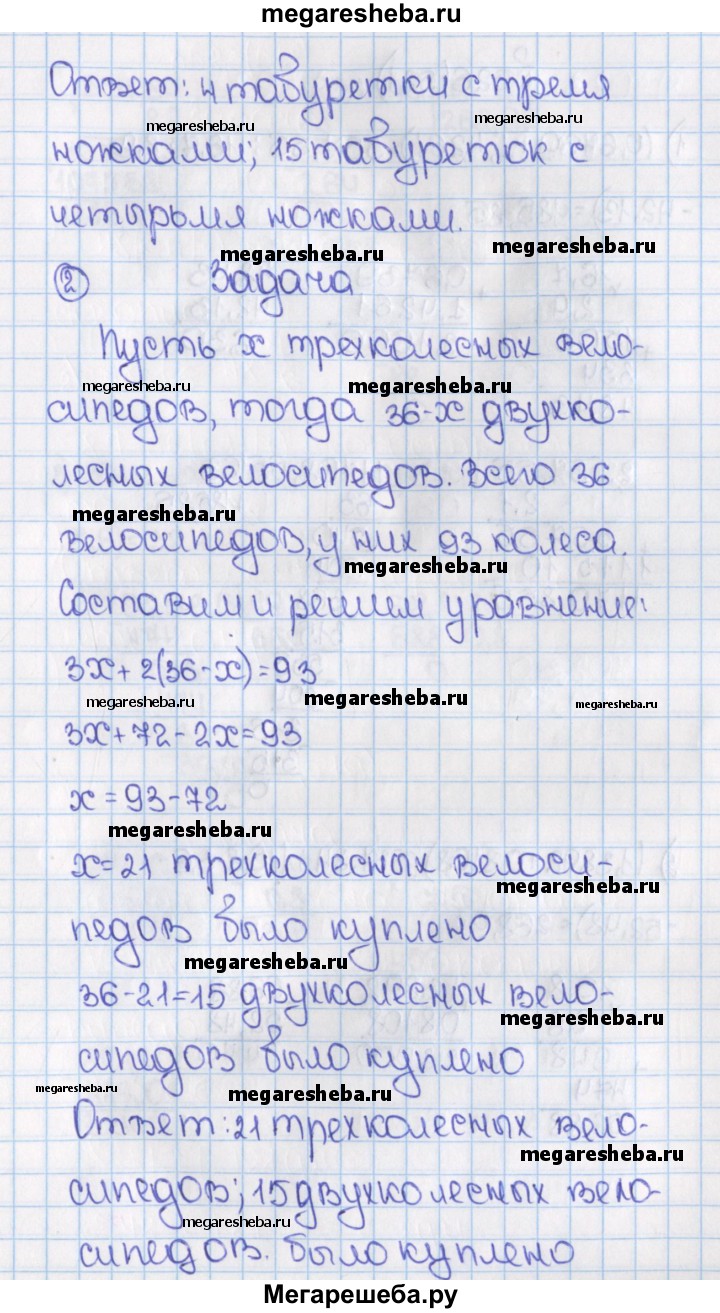 megaresheba.ru
Ответ: 4 табуретки с тремя
megaresheba.ru
megaresheba.ru
ножками; 15 табуреток с
четырьмя ножками.
megaresheba.ru
megaresheba.ru
2 Задача
Пусть x трехколесных вело-
megaresheba.ru
megaresheba.ru
сипедов, тогда 36-x двухко-
лесных велосипедов. Всего 36
megaresheba.ru
велосипедов, у них 93 колеса.
megaresheba.ru
Составим и решим уравнение:
3x+2(36-x)=93
megaresheba.ru
megaresheba.ru
megaresheba.ru
3x+72-2x=93
x=93-72
megaresheba.ru
x=21 трехколесных велоси-
megaresheba.ru
педов было куплено
megaresheba.ru
36-21=15 двухколесных вело-
megaresheba.ru
сипедов было куплено
megaresheba.ru
megaresheba.ru
Ответ: 21 трехколесных вело-
megaresheba.ru
сипедов; 15 двухколесных вело-
megaresheba.ru
сипедов. было куплено
Мегарешеба.ру